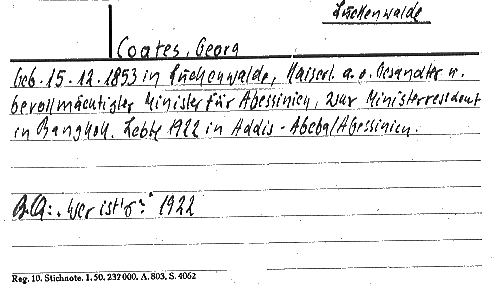 Luckenwalde
Coates, Georg
Geb. 15.12.1853 in Luckenwalde, Kaiserl. a.o. Gesandter u.
bevollmächtigter Minister für Abessinien, zuvor Ministerresident
in Bangkok. Lebte 1922 in Addis-Abeba/Abessinien.
B.Q.: "Wer ist's?" 1922
Reg. 10. Stichnote. I. 50. 237000. A. 803. S. 4062